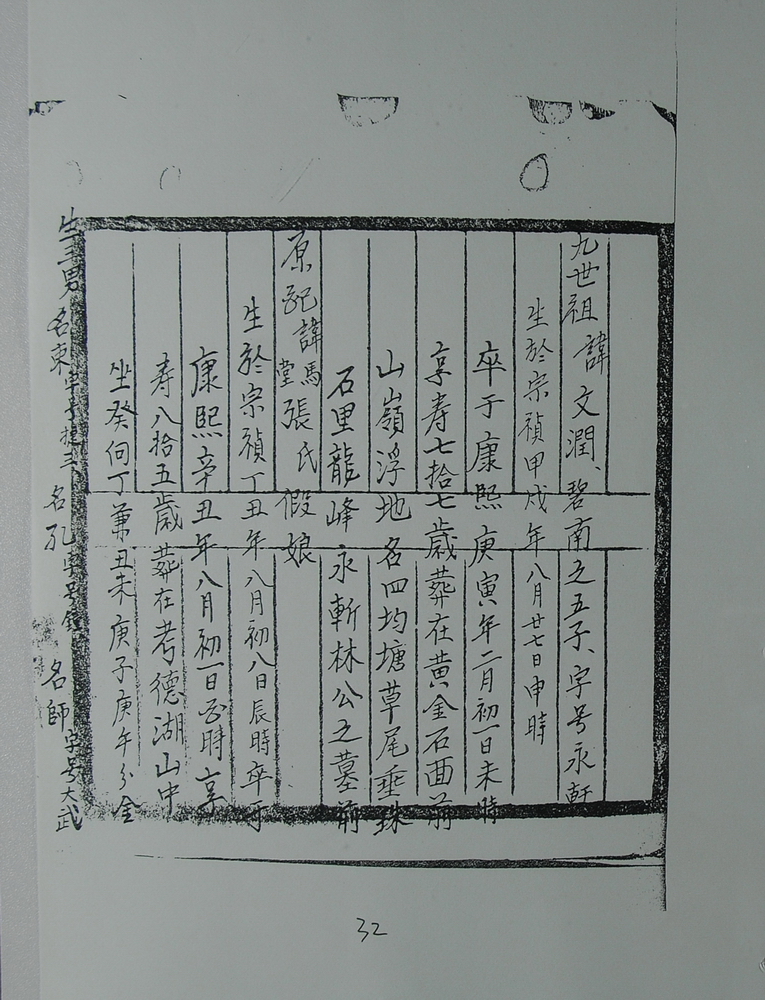 九世祖諱文潤、碧南之五子、字号永軒
生於宗禎甲戌年八月廿七日申時
卒于康熙庚寅年二月初一日未時
享寿七拾七歲葬在黃金石面前
山嶺浮地名四均塘草尾垂珠
石里龍峰永斬林公之墓前
原配諱馬堂張氏假娘
生於宗禎丁丑年八月初八日辰時卒于
康熙辛丑年八月初一日 時享
寿八拾五歲葬在考德湖山中
坐癸向丁兼丑未庚子庚午分金
生三男名東字号捷三名孔字号 名師字号大武
32